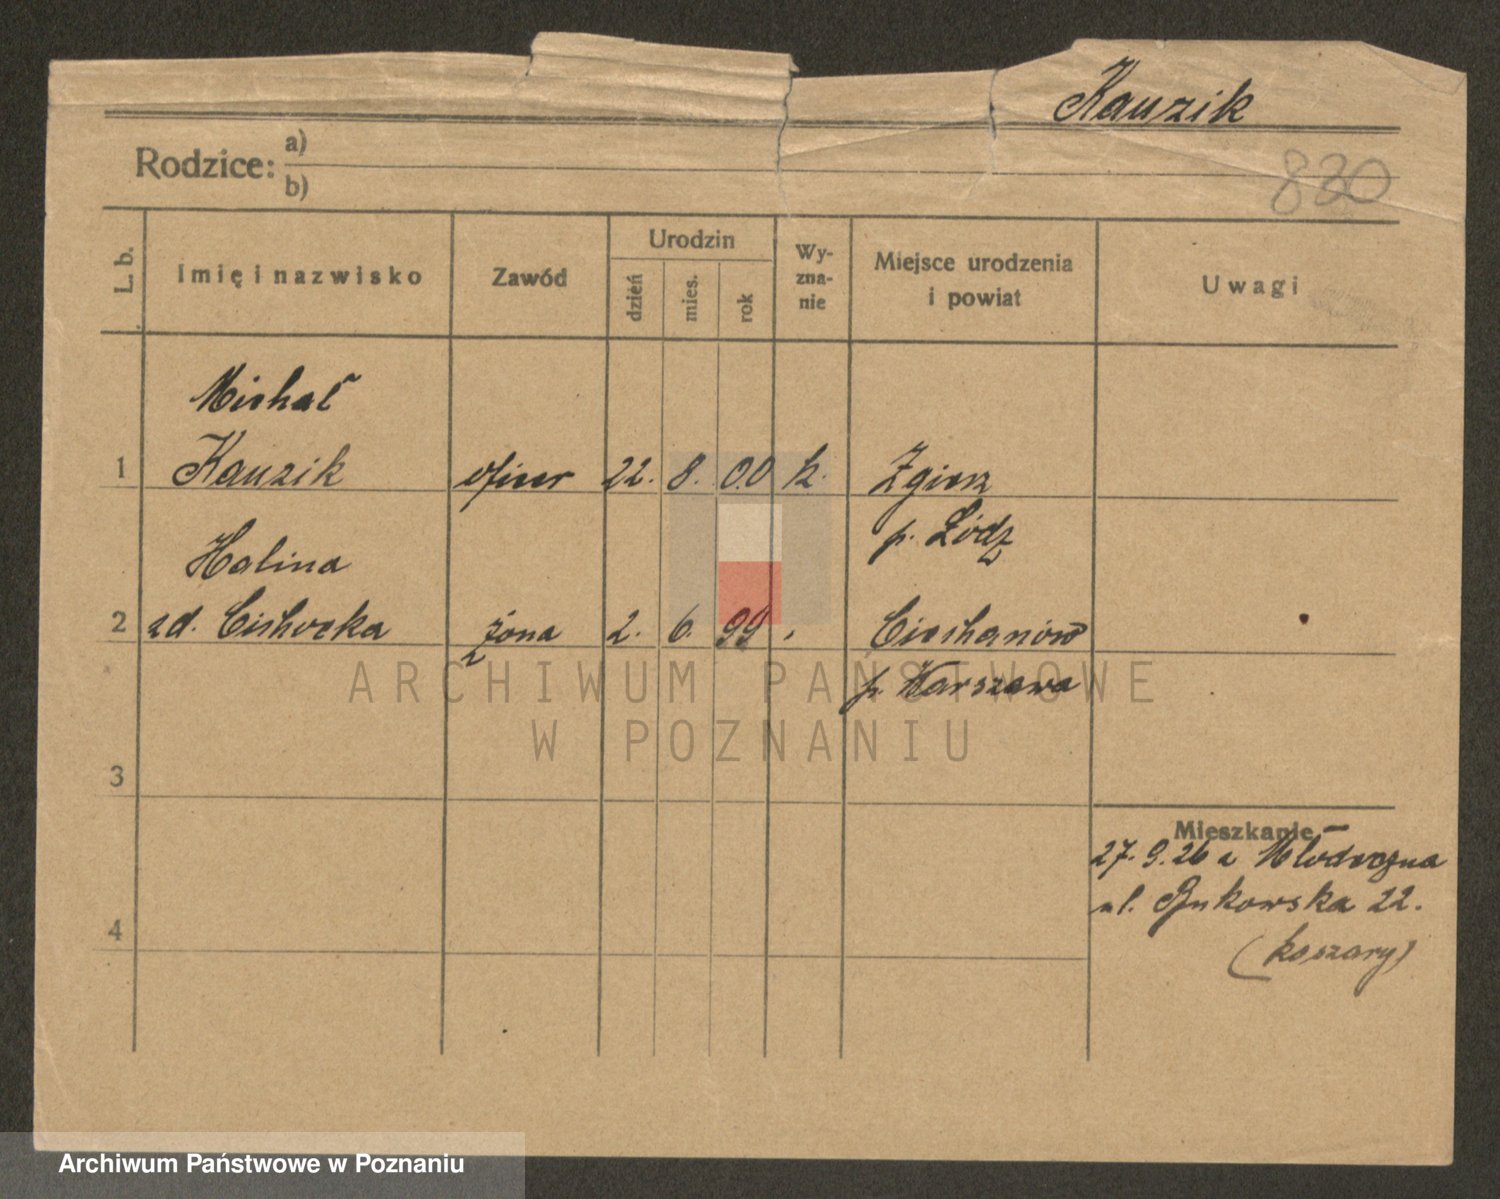 Kauzik
Rodzice: a)
b)
830
L. b.
Imię i nazwisko
Zawód
Urodzin
dzień
mies.
rok
Wy-
zna-
nie
Miejsce urodzenia
i powiat
Uwagi
Michał
1 Kauzik oficer 22. 8. 00 k. Zgierz
p. Łódź
Halina
2 zd. Cichocka żona 2. 6. 99 , Ciechanów
p. Warszawa
ARCHIWUM PAŃSTWOWE
W POZNANIU
3
Mieszkanie
27. 9. 26 z Młodeczna
4
ul. Bukowska 22.
(koszary)
Archiwum Państwowe w Poznaniu